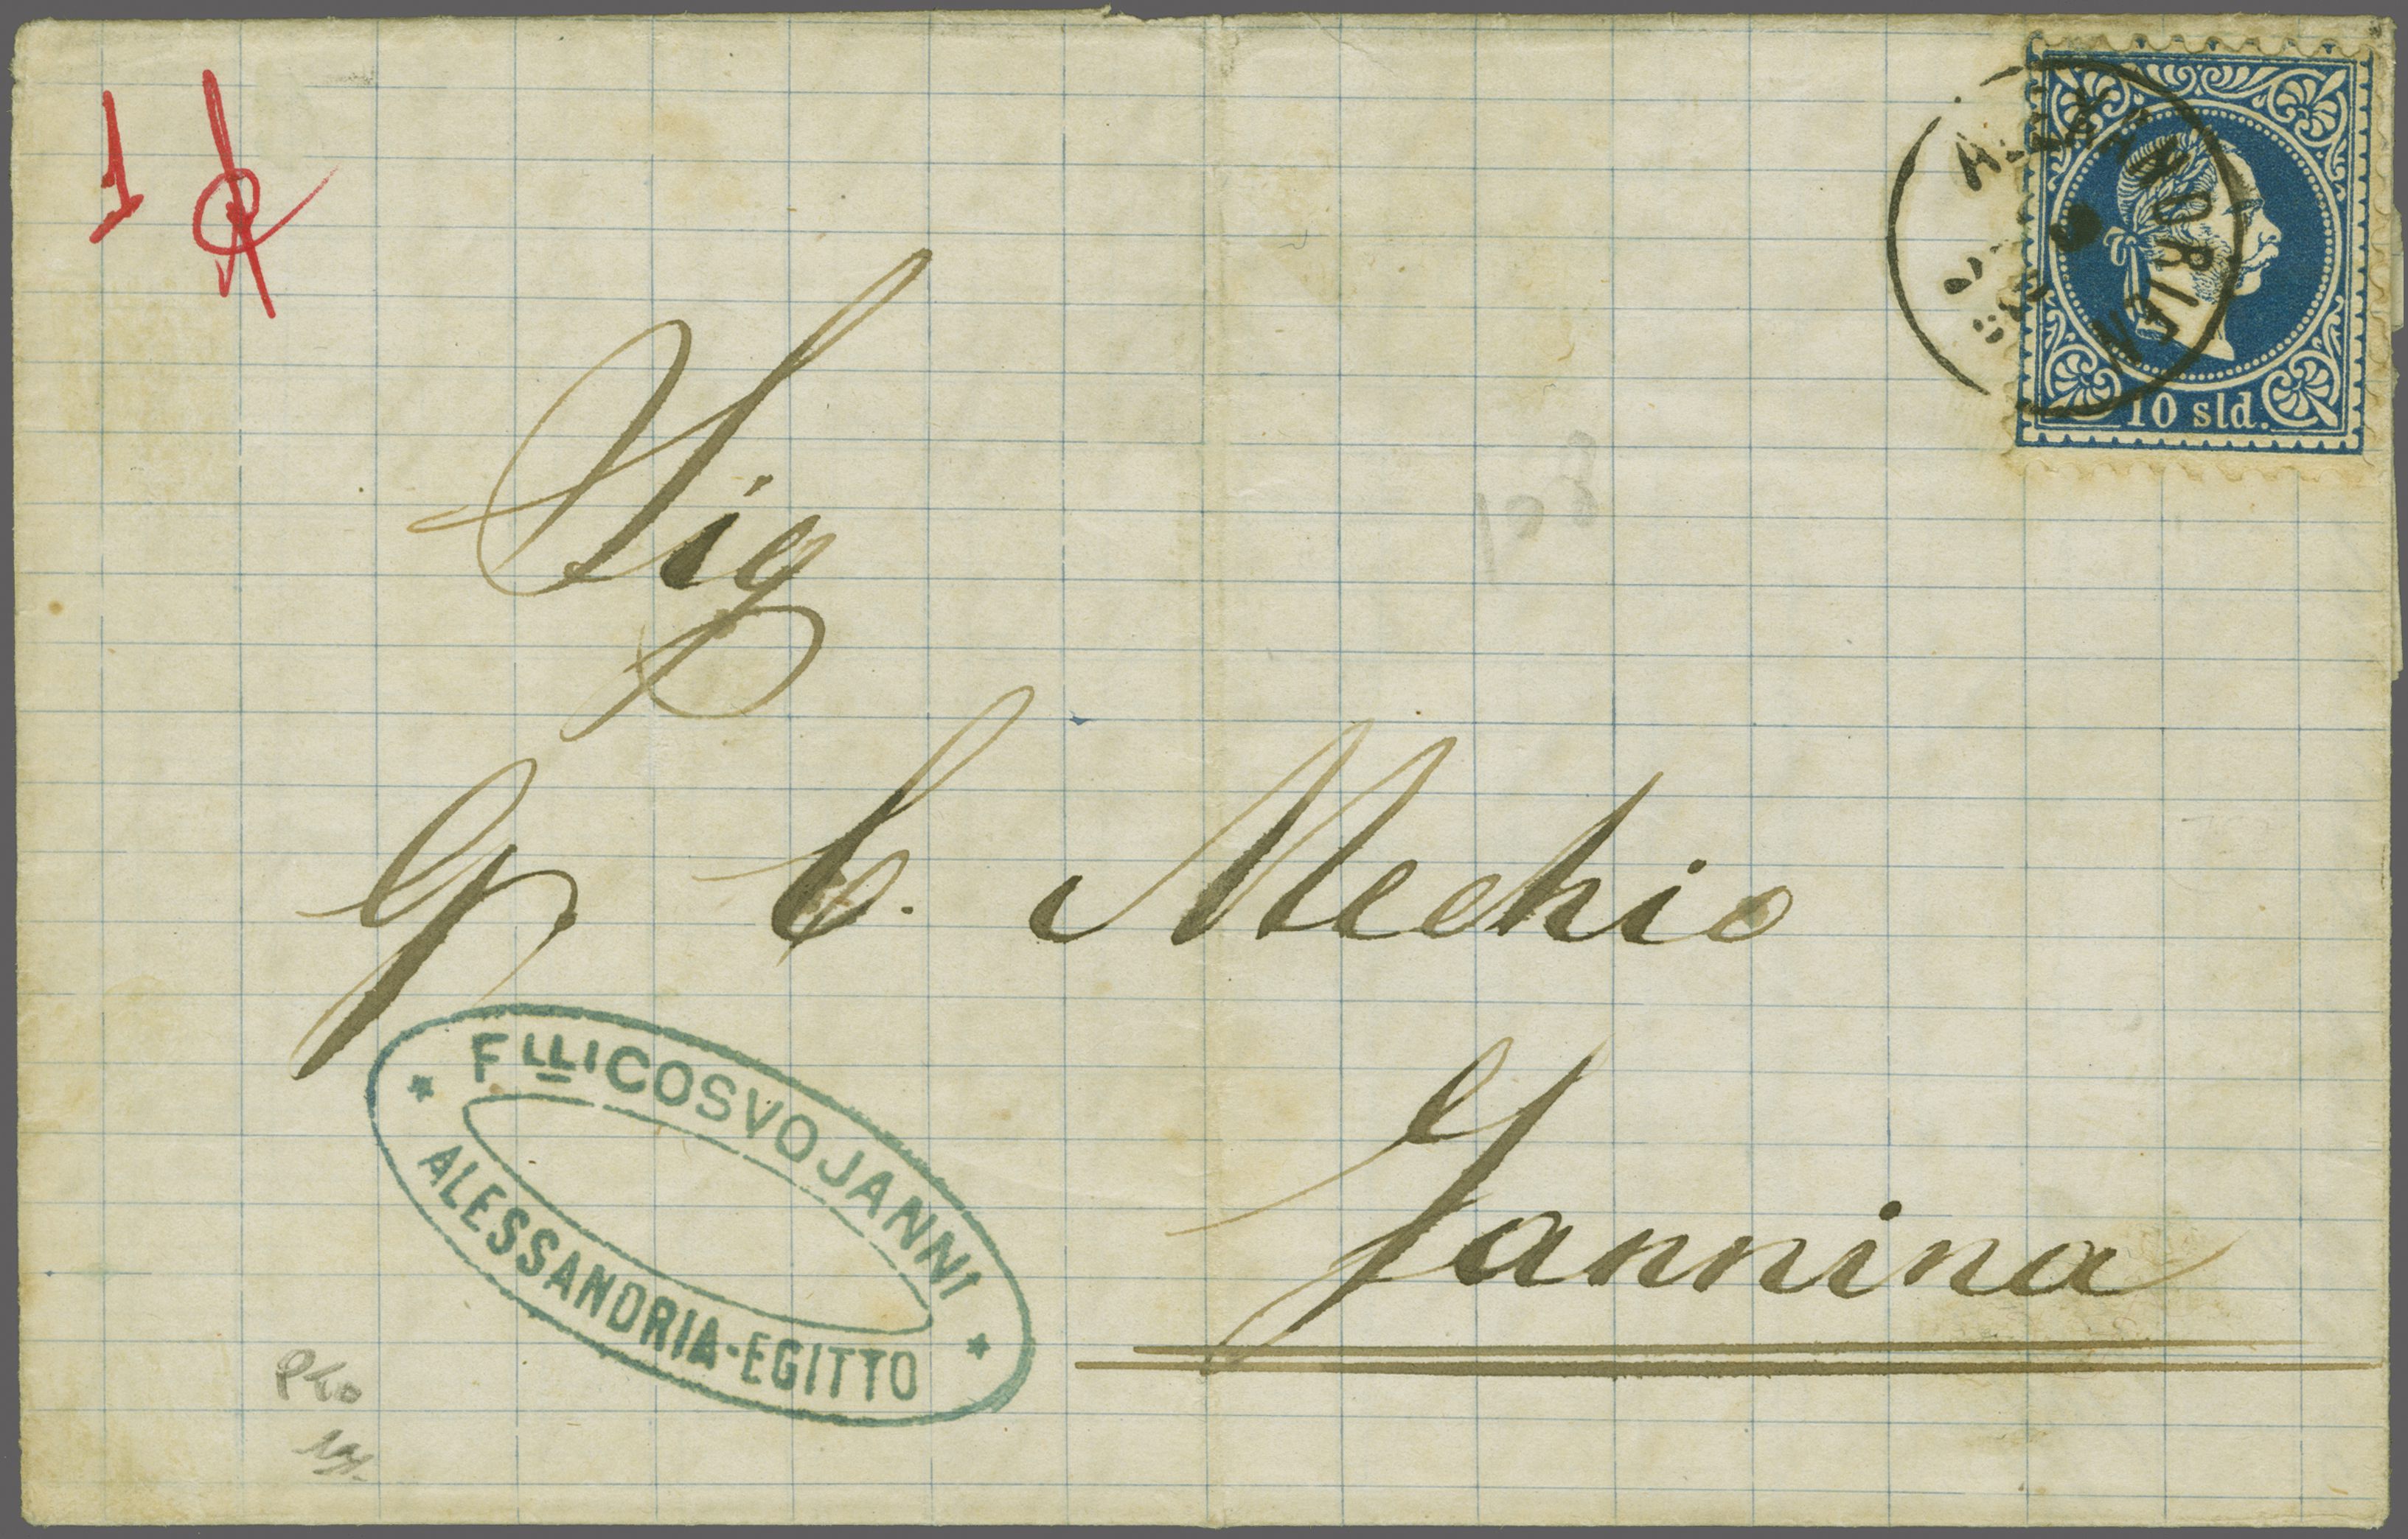 1
ALEXANDRIEN
10 sld.
108
Sig
G C. Mechio
Jannina
FLLI COSVOJANNI
ALESSANDRIA-EGITTO